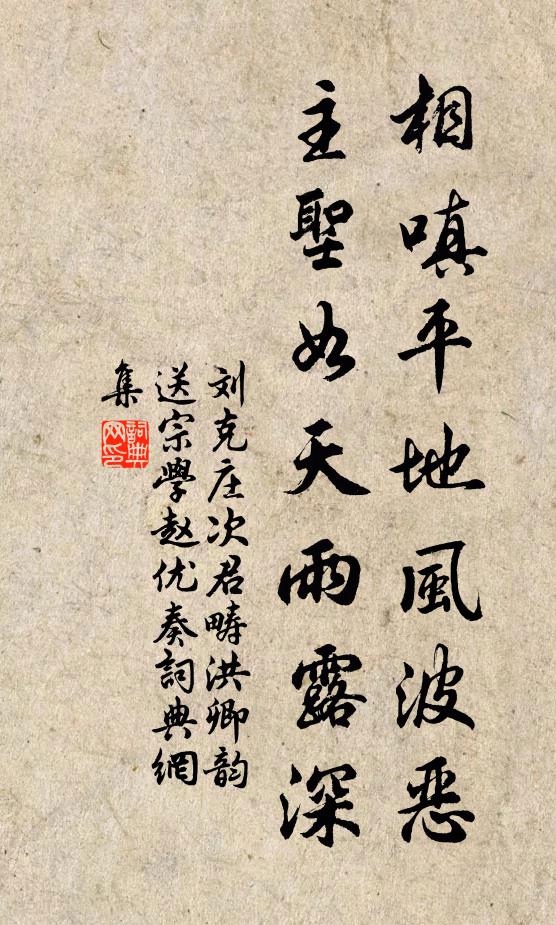 相嗔平地風波惡
主聖如天雨露深
刘克庄次君疇洪卿韵
送宗學赵优奏詞典網
集
詞典
网印